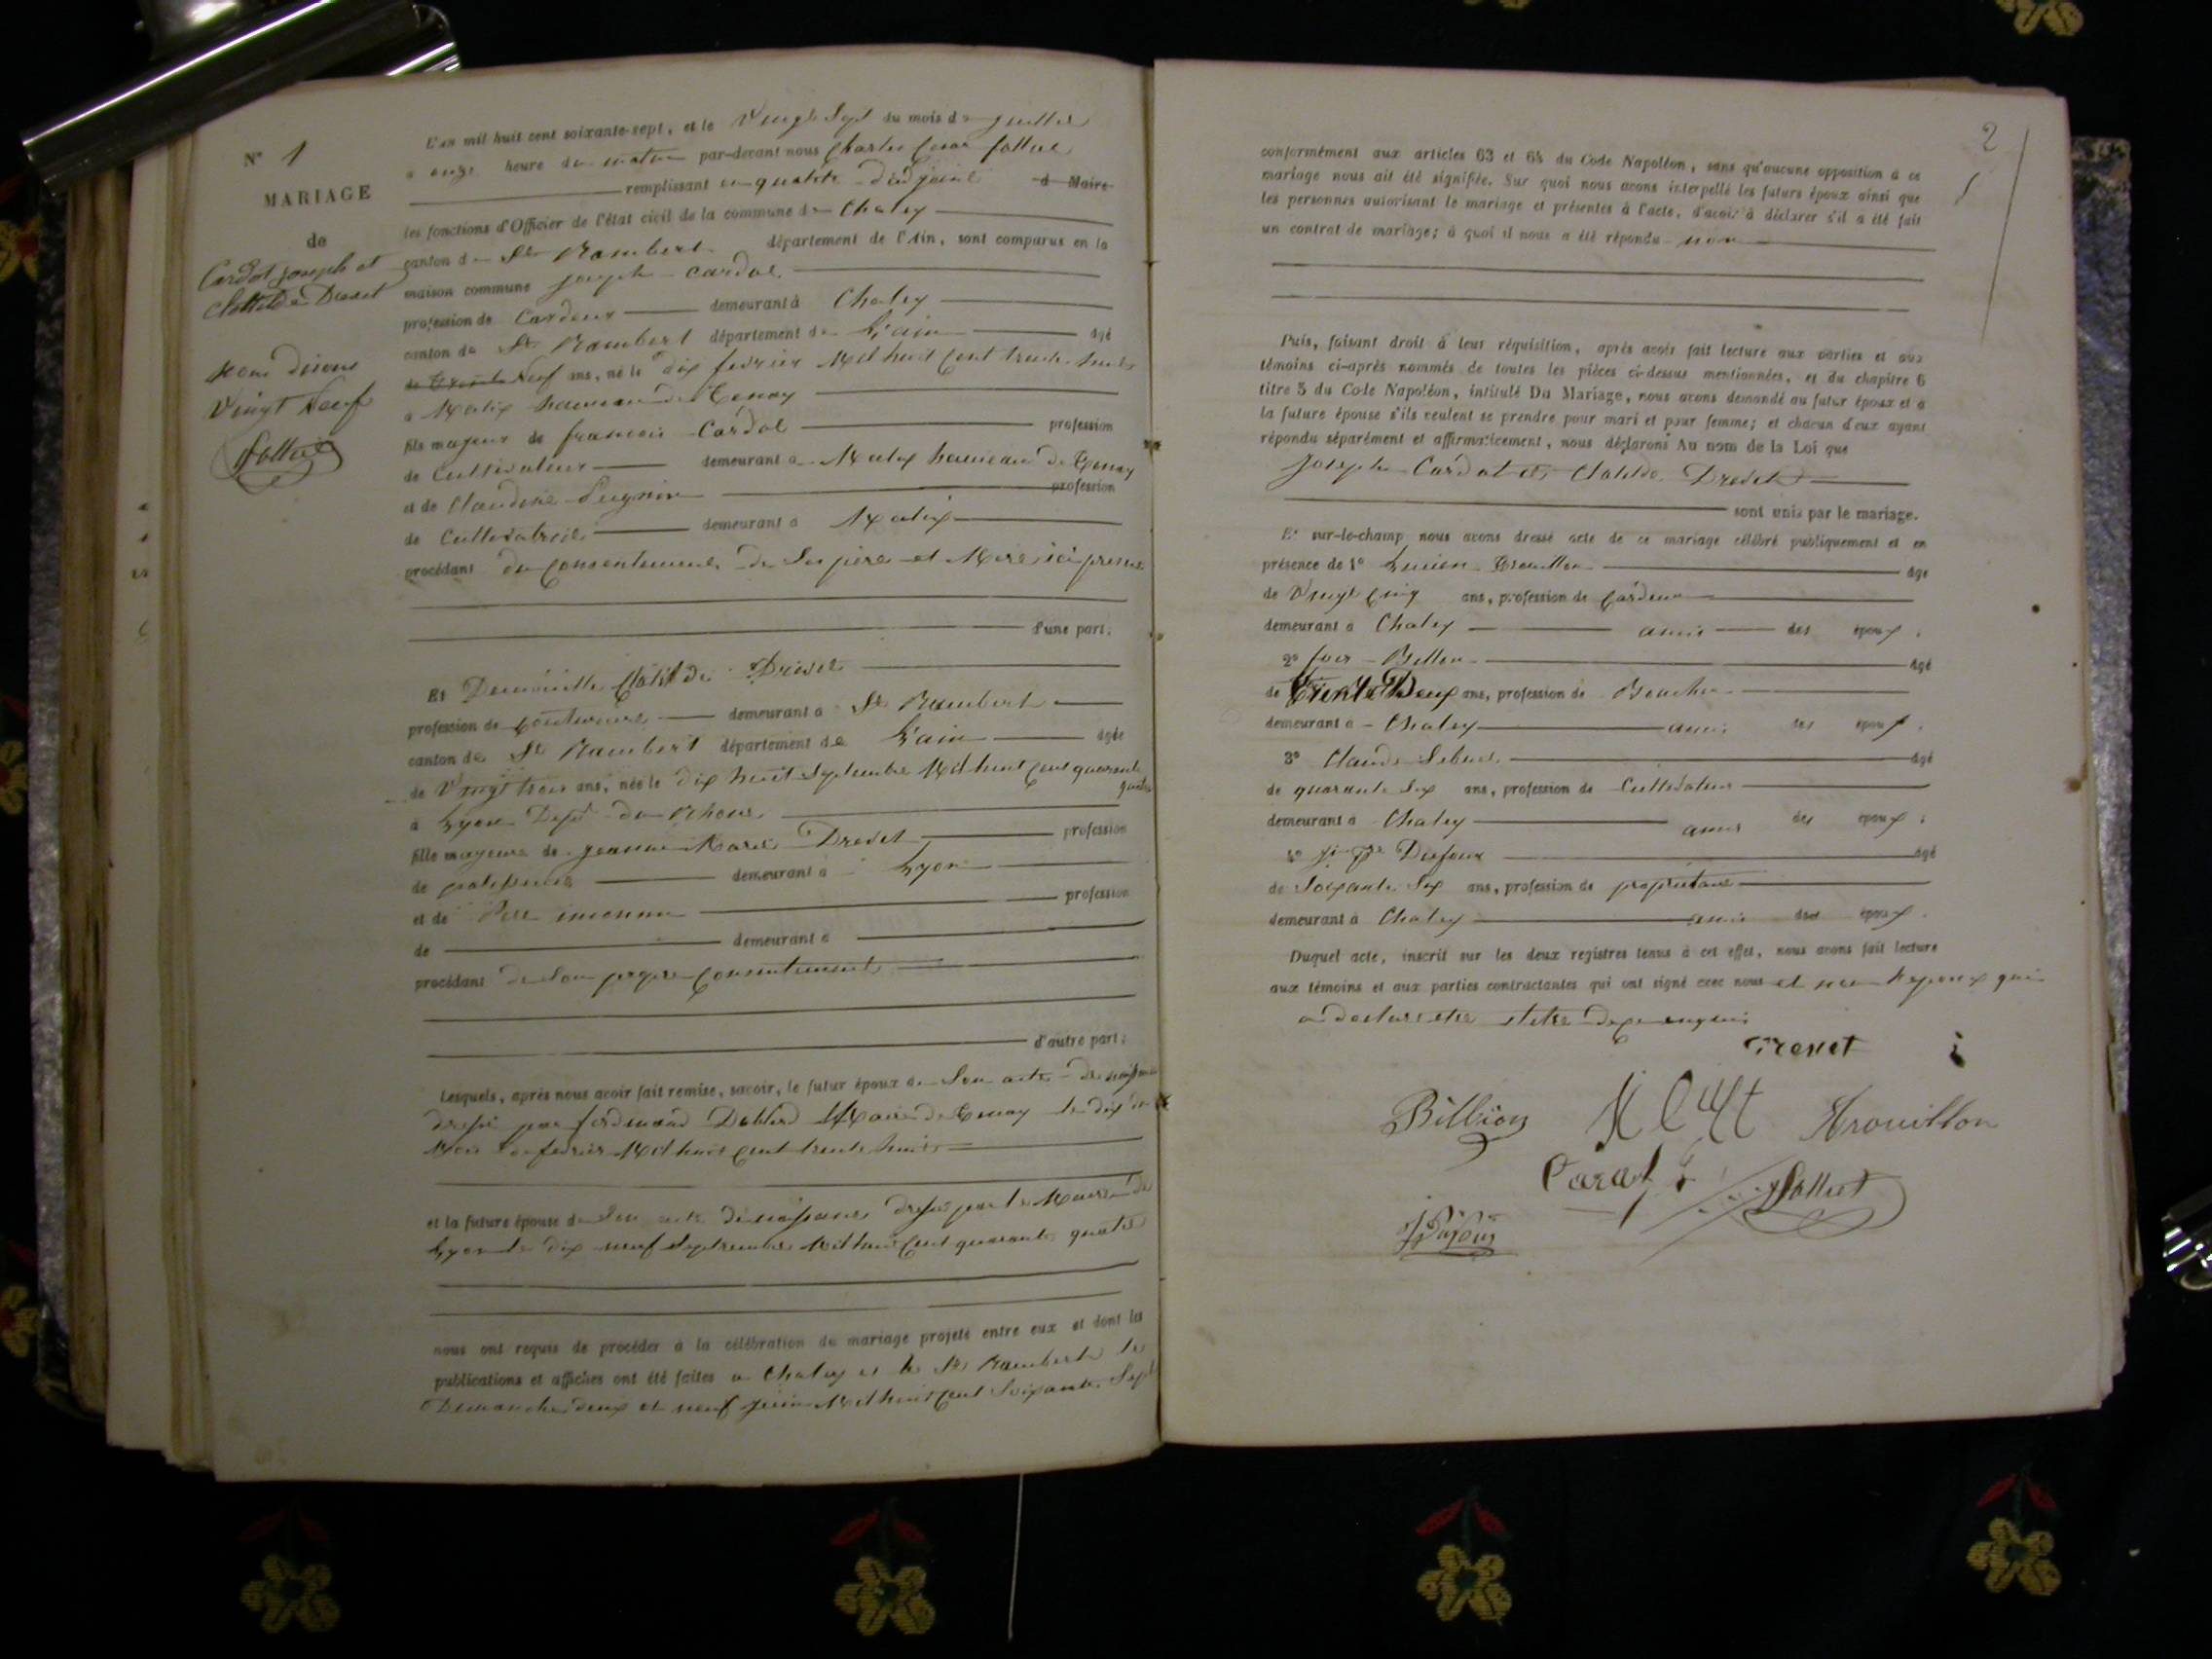 N° 1
MARIAGE
de
Cardot joseph et
Clotilde Drevet
nous disons
Vingt Neuf
L'an mil huit cent soixante-sept, et le Vingt Sept du mois de juillet
à onze heure du matin par-devant nous Charles Cesar
remplissant en qualité d'adjoint d Maire
les fonctions d'Officier de l'état civil de la commune de Chaley
canton de St Rambert département de l'Ain, sont comparus en la
maison commune joseph Cardot
profession de Cardeur demeurant à Chaley
canton de St Rambert département de L'ain âgé
de trente Neuf ans, né le dix fevrier Mil huit Cent trente huit
à Malix hameau de Tenay
fils majeur de francois Cardot profession
de Cultivateur demeurant à Malix hameau de Tenay
et de Claudine profession
de Cultivatrice demeurant à Malix
procédant du Consentement de Ses père et Mere ici present
d'une part;
Et Demoiselle Clotilde Drevet
profession de demeurant à St Rambert
canton de St Rambert département de L'ain âgée
de Vingt trois ans, née le dix huit Septembre Mil huit Cent quarante
quatre
à Lyon Dept du Rhone
fille majeure de jeanne Marie Drevet profession
de demeurant à Lyon
et de Père inconnu profession
de demeurant à
procédant de Son propre Consentement
d'autre part;
Lesquels, après nous avoir fait remise, savoir, le futur époux de Son acte de naissance
dressé par ferdinand Maire de Tenay le dix du
Mois de fevrier Mil huit Cent trente huit
et la future épouse de Son acte de naissance dressé par le Maire de
Lyon le dix neuf Septembre Mil huit Cent quarante quatre
nous ont requis de procéder à la célébration du mariage projeté entre eux et dont les
publications et affiches ont été faites à Chaley et à St Rambert les
Dimanches deux et neuf juin Mil huit Cent Soixante Sept
2
conformément aux articles 63 et 64 du Code Napoléon, sans qu'aucune opposition à ce
mariage nous ait été signifiée. Sur quoi nous avons interpellé les futurs époux ainsi que
les personnes autorisant le mariage et présentes à l'acte, d'avoir à déclarer s'il a été fait
un contrat de mariage; à quoi il nous a été répondu non
Puis, faisant droit à leur réquisition, après avoir fait lecture aux parties et aux
témoins ci-après nommés de toutes les pièces ci-dessus mentionnées, et du chapitre 6
titre 5 du Code Napoléon, intitulé Du Mariage, nous avons demandé au futur époux et à
la future épouse s'ils veulent se prendre pour mari et pour femme; et chacun d'eux ayant
répondu séparément et affirmativement, nous déclarons Au nom de la Loi que
Joseph Cardot et Clotilde Drevet
sont unis par le mariage.
Et sur-le-champ nous avons dressé acte de ce mariage célébré publiquement et en
présence de 1° Lucien Trouillon âgé
de Vingt Cinq ans, profession de Cardeur
demeurant à Chaley amis des époux;
2° âgé
de Trente Deux ans, profession de Boucher
demeurant à Chaley amis des époux;
3° Claude âgé
de quarante Six ans, profession de Cultivateur
demeurant à Chaley amis des époux;
4° Dufour âgé
de Soixante Six ans, profession de propriétaire
demeurant à Chaley amis des époux.
Duquel acte, inscrit sur les deux registres tenus à cet effet, nous avons fait lecture
aux témoins et aux parties contractantes qui ont signé avec nous et non l'epoux qui
a declaré
Drevet
Billion Trouillon